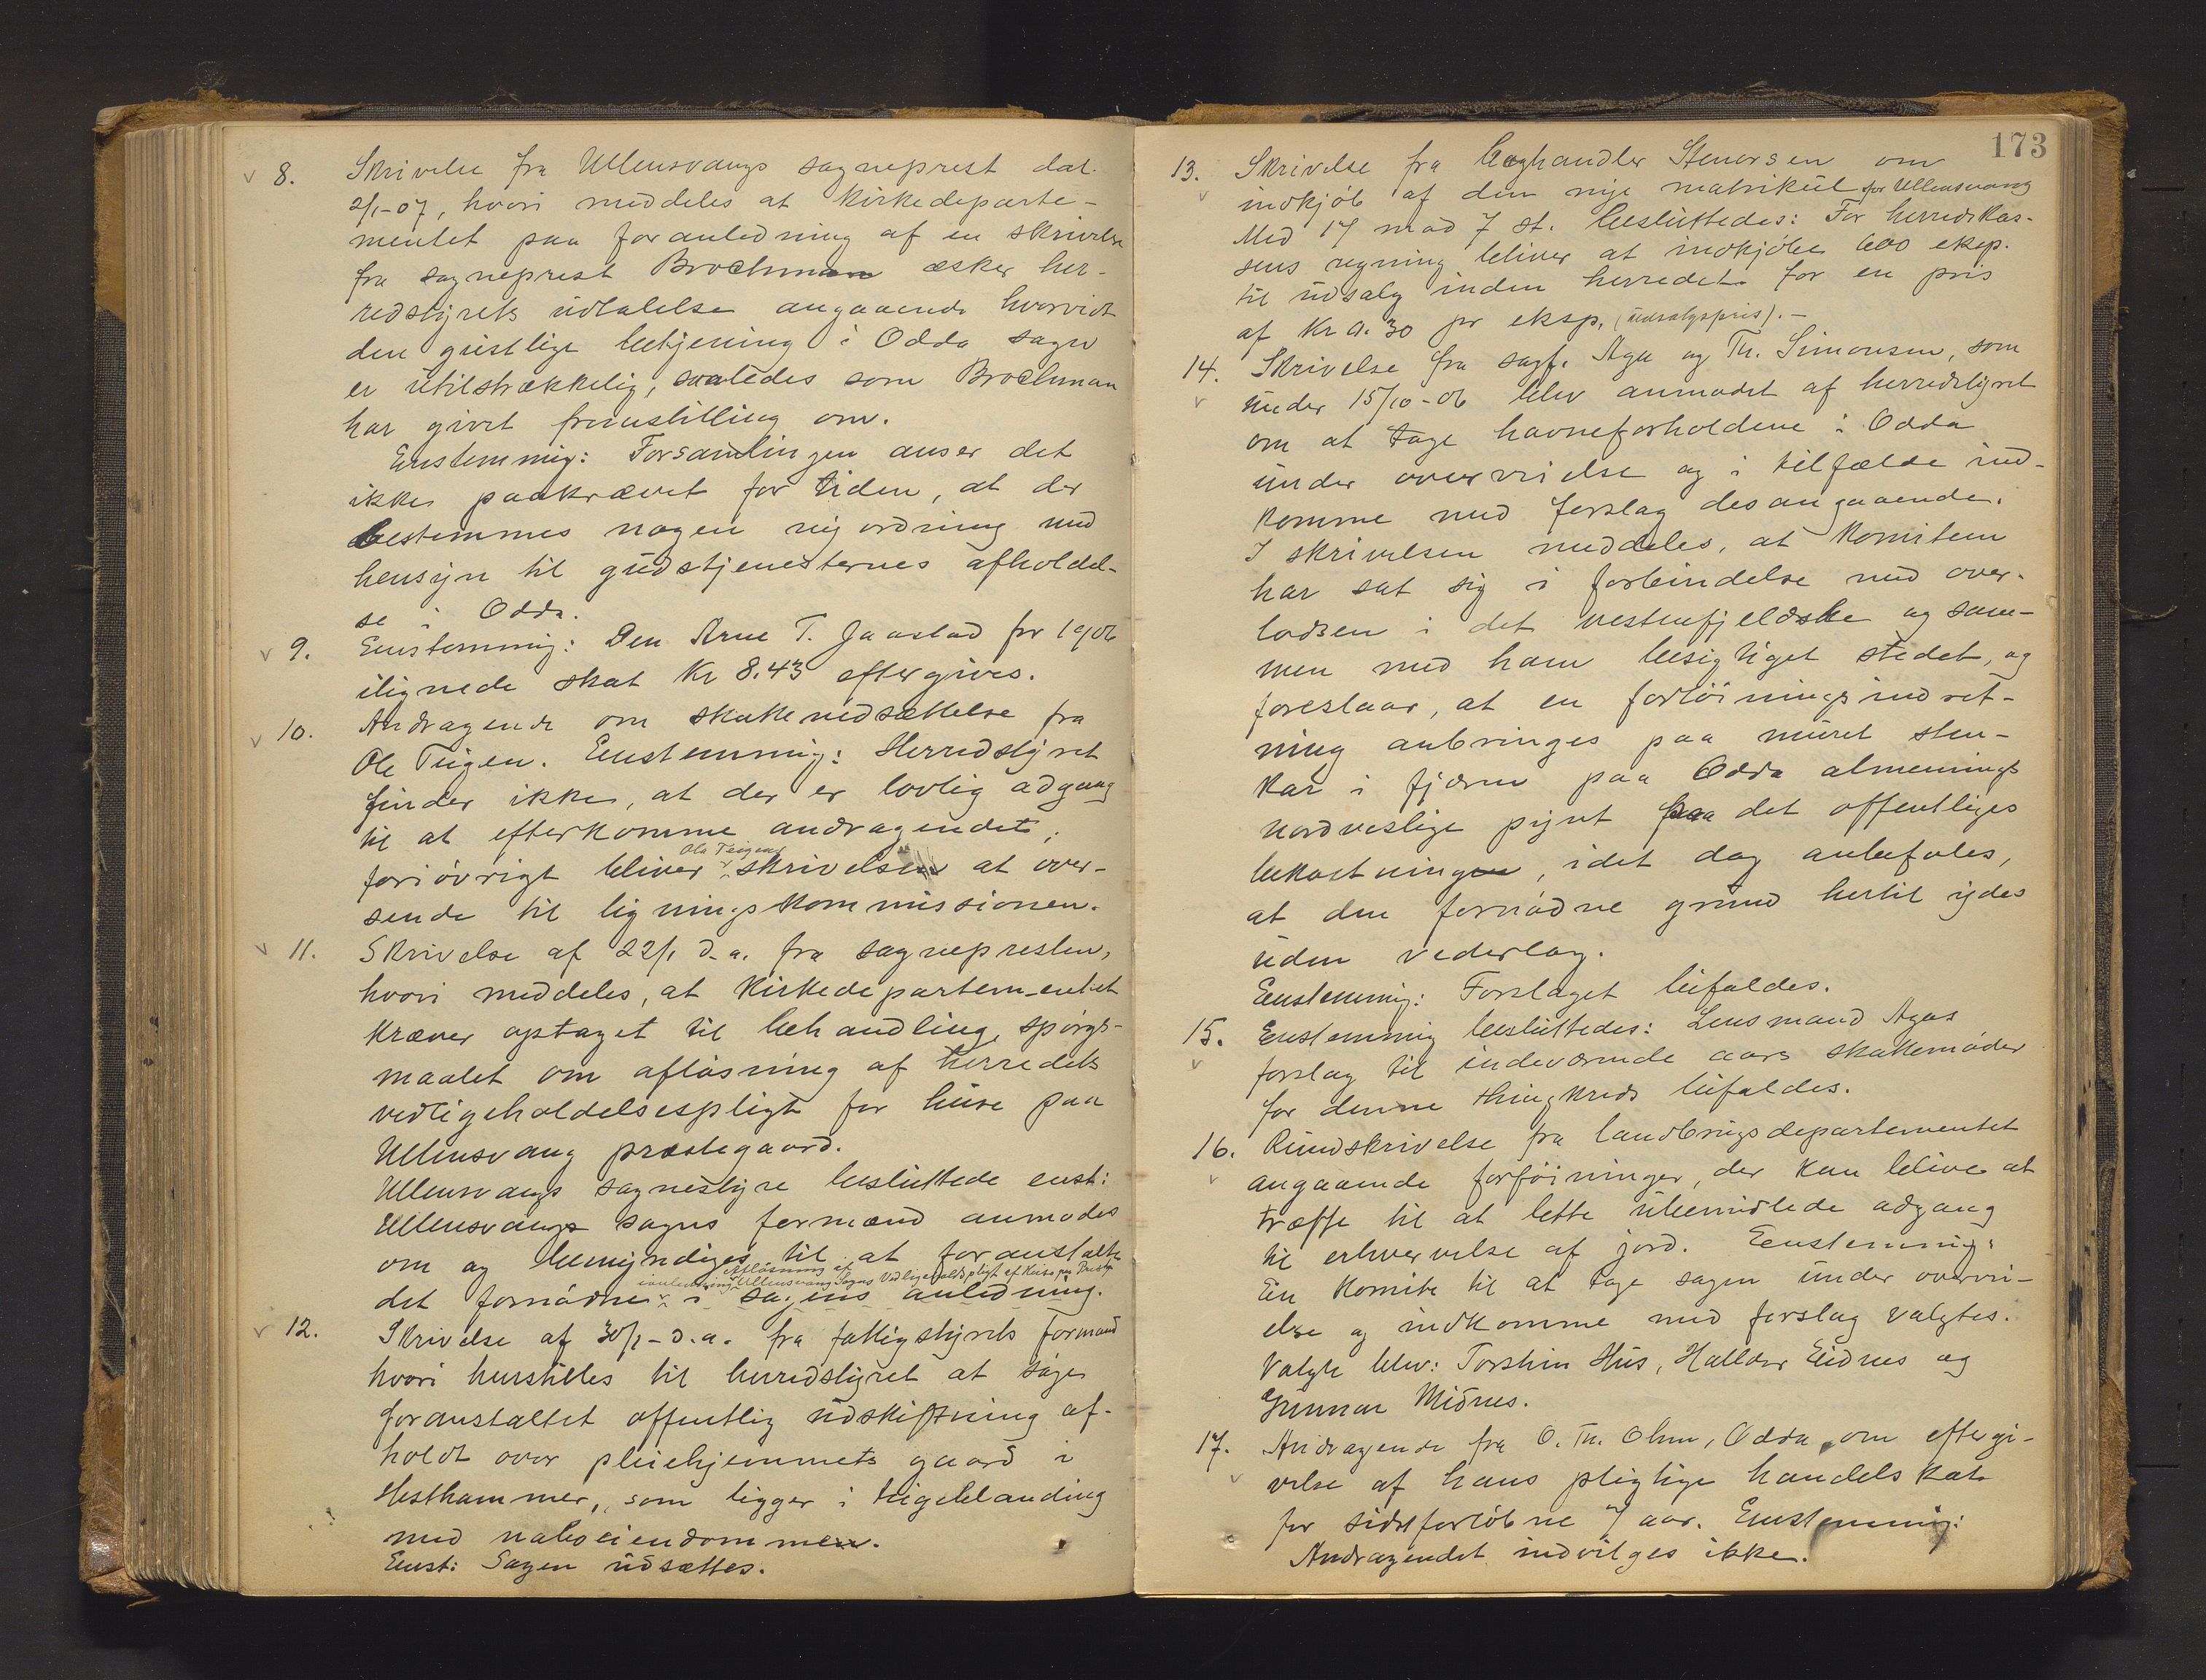 v 8. Skrivelse fra Ullensvangs sogneprest dat.
2/1-07, hvori meddeles at Kirkedeparte-
mentet paa foranledning af en skrivelse
fra sogneprest Brochman æsker her-
redstyrets udtalelse angaaende hvorvidt
den geistlige betjening i Odda sogn
er utilstrækkelig, saaledes som Brochman
har givet fremstilling om.
Enstemmig: Forsamlingen anser det
ikke paakrævet for tiden, at der
bestemmes nogen ny ordning med
hensyn til gudstjenesternes afholdel-
se i Odda.
v 9. Enstemmig: Den Arne T. Jaastad for 1906
ilignede skat Kr 8.43 eftergives.
v 10. Andragende om skattenedsættelse fra
Ole Teigen. Enstemmig: Herredstyret
finder ikke, at der er lovlig adgang
til at efterkomme andragendet,
Ole Teigens
foriøvrigt bliver skrivelsen at over-
sende til ligningskommissionen.
v 11. Skrivelse af 22/1 d.a. fra sognepresten,
hvori meddeles, at Kirkedepartementet
kræver optaget til behandling spørgs-
maalet om afløsning af herredets
vedligeholdelsespligt for huse paa
Ullensvang prestegaard.
Ullensvangs sognestyre besluttede enst:
Ullensvangs sogns formand anmodes
om og bemyndiges til at foranstalte
Afløsning af
Ullensvang Sogns Vedligeholdspligt af Huse paa Prestg.
det fornødne i sagens anledning.
v 12. Skrivelse af 30/1-d.a. fra fattigstyrets formand
hvori henstilles til herredstyret at søge
foranstaltet offentlig udskiftning af-
holdt over pleiehjemmets gaard i
Hesthammer, som ligger i teigeblanding
med naboeiendommen.
Enst: Sagen udsættes.
173
13. Skrivelse fra boghandler Stenersen om
v indkjøb af den nye matrikul for Ullensvang
Med 17 mod 7 st. besluttedes: For herredskas-
sens regning bliver at indkjøbe 600 eksp.
til udsalg inden herredet for en pris
af Kr 0.30 pr eksp. (udsalgspris).-
14. Skrivelse fra sagf. Aga og Th. Simonsen, som
v under 15/10-06 blev anmodet af herredstyret
om at tage havneforholdene i Odda
under overveielse og i tilfælde ind-
komme med forslag desangaaende.
I skrivelsen meddeles, at komiteen
har sat sig i forbindelse med over-
lodsen i det vestenfjeldske og sam-
men med ham besigtiget stedet, og
foreslaar, at en fortøiningsindret-
ning anbringes paa muret sten-
kar i fjæren paa Odda almennings
nordvestlige pynt paa det offentliges
bekostning, idet dog anbefales,
at den fornødne grund hertil ydes
uden vederlag.
Eenstemmig: Forslaget bifaldes.
15. Enstemmig besluttedes: Lensmand Agas
v forslag til indeværende aars skattemøder
for denne thingkreds bifaldes.
16. Rundskrivelse fra landbrugsdepartementet
v angaaende forføininger, der kan blive at
træffe til at lette ubemidlede adgang
til erhvervelse af jord. Eenstemmig:
En komite til at tage sagen under overvei-
else og indkomme med forslag valgtes.
Valgte blev: Torstein Hus, Halldor Eidnes og
Gunnar Midnes.
17. Andragende fra O. Th. Ohm, Odda, om eftergi-
v velse af hans pligtige handelskat
for sidstforløbne aar. Enstemmig:
Andragendet indvilges ikke.